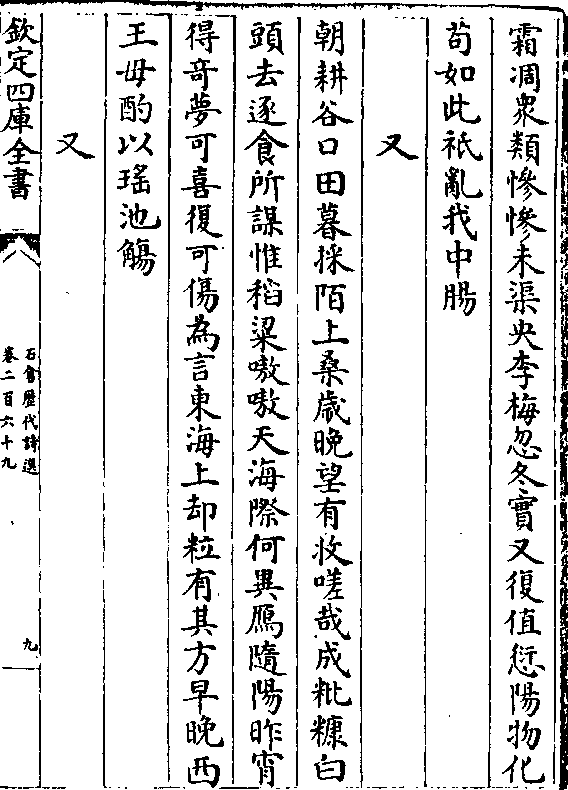 霜凋衆類慘慘未渠央李梅忽冬實又復值愆陽物化
苟如此祇亂我中腸
又
朝耕谷口田暮採陌上桑歲晩望有收嗟哉成粃糠白
頭去逐食所謀惟稻粱嗷嗷天海際何異鴈隨陽昨宵
得奇夢可喜復可傷為言東海上却粒有其方早晚西
王母酌以瑶池觴
又
欽定四庫全書
石倉歷代詩選
卷二百六十九
九